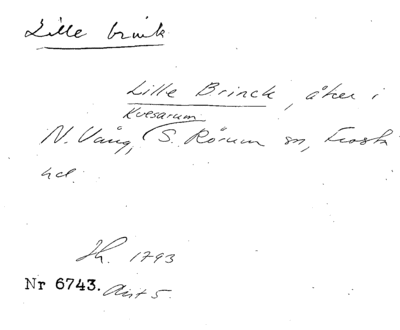 Lille brink
Lille Brinck, åker i
Kvesarum
N. Vång, S. Rörum sn, Frosta
hd.
Jh. 1793
Nr 6743. Akt 5.